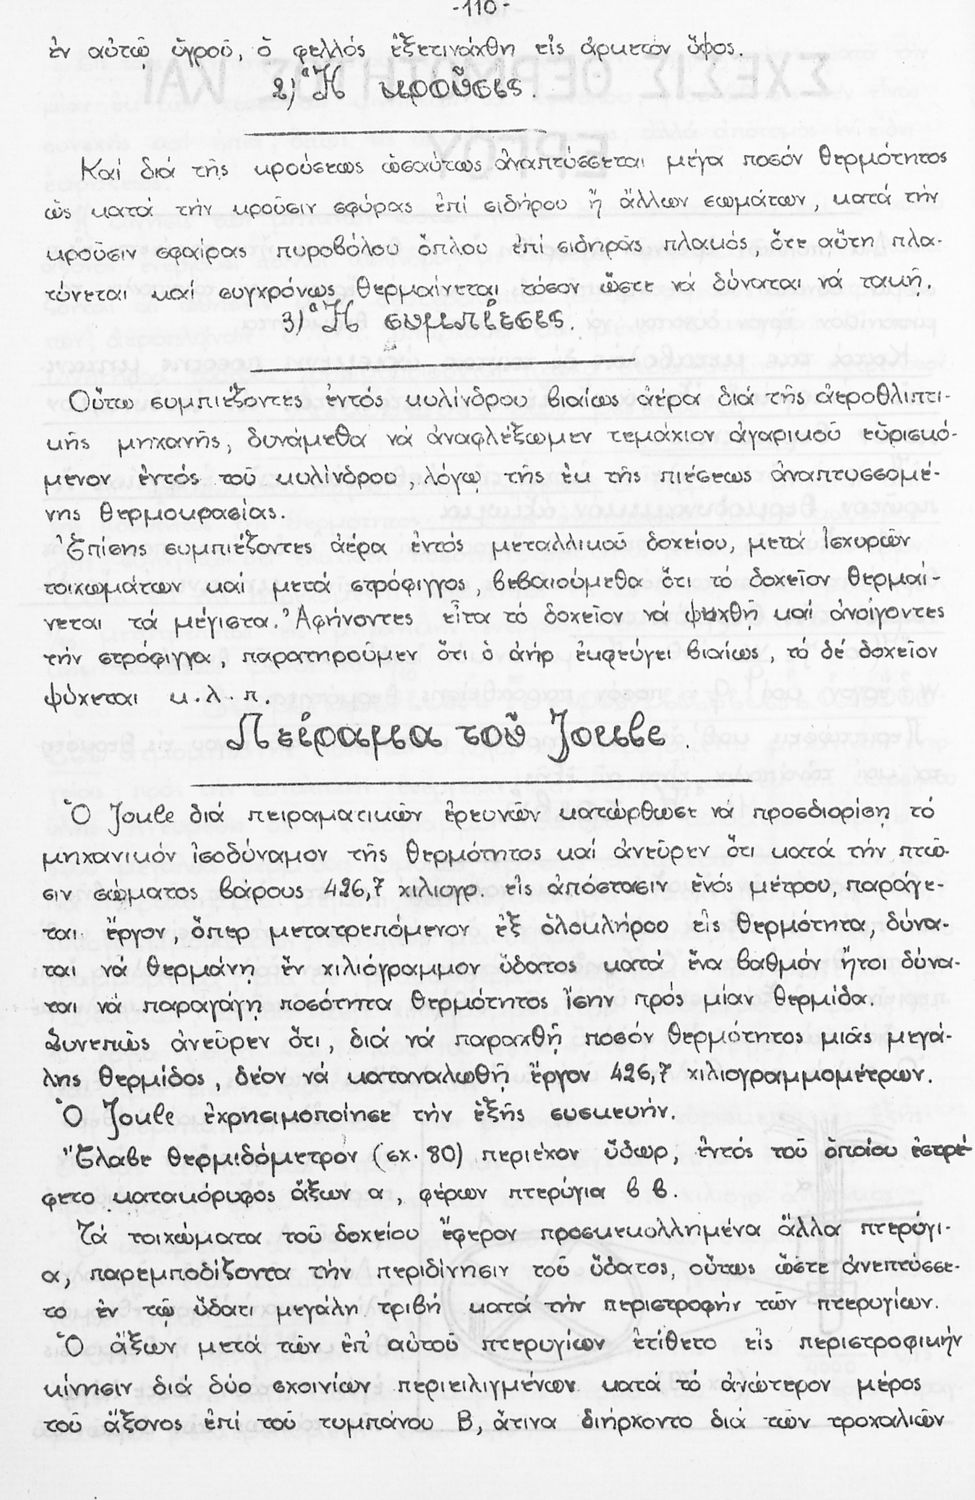 -110-
ἐν αὐτῷ ὑγροῦ, ὁ φελλός ἐξετινάχθη εἰς ἀρκετόν ὕψος.
2) Ἡ κροῦσις.
Καί διά τῆς κρούσεως ὡσαύτως ἀναπτύσσεται μέγα ποσόν θερμότητος
ὡς κατά τήν κροῦσιν σφύρας ἐπί σιδήρου ἤ ἄλλων σωμάτων, κατά τήν
κροῦσιν σφαίρας πυροβόλου ὅπλου ἐπί σιδηρᾶς πλακός, ὅτε αὕτη πλα-
τύνεται καί συγχρόνως θερμαίνεται τόσον ὥστε νά δύναται νά τακῇ.
3) Ἡ συμπίεσις.
Οὕτω συμπιέζοντες ἐντός κυλίνδρου βιαίως ἀέρα διά τῆς ἀεροθλιπτι-
κῆς μηχανῆς, δυνάμεθα νά ἀναφλέξωμεν τεμάχιον ἀγαρικοῦ εὑρισκό-
μενον ἐντός τοῦ κυλίνδρου, λόγῳ τῆς ἐκ τῆς πιέσεως ἀναπτυσσομέ-
νης θερμοκρασίας.
Ἐπίσης συμπιέζοντες ἀέρα ἐντός μεταλλικοῦ δοχείου, μετά ἰσχυρῶν
τοιχωμάτων καί μετά στρόφιγγος, βεβαιούμεθα ὅτι τό δοχεῖον θερμαί-
νεται τά μέγιστα. Ἀφήνοντες εἶτα τό δοχεῖον νά ψυχθῇ καί ἀνοίγοντες
τήν στρόφιγγα, παρατηροῦμεν ὅτι ὁ ἀήρ ἐκφεύγει βιαίως, τό δέ δοχεῖον
ψύχεται κ.λ.π.
Πείραμα τοῦ Joule.
Ὁ Joule διά πειραματικῶν ἐρευνῶν κατώρθωσε νά προσδιορίσῃ τό
μηχανικόν ἰσοδύναμον τῆς θερμότητος καί ἀνεῦρεν ὅτι κατά τήν πτῶ-
σιν σώματος βάρους 426,7 χιλιογρ. εἰς ἀπόστασιν ἑνός μέτρου, παράγε-
ται ἔργον, ὅπερ μετατρεπόμενον ἐξ ὁλοκλήρου εἰς θερμότητα, δύνα-
ται νά θερμάνῃ ἕν χιλιόγραμμον ὕδατος κατά ἕνα βαθμόν ἤτοι δύνα-
ται νά παραγάγῃ ποσότητα θερμότητος ἴσην πρός μίαν θερμίδα.
Συνεπῶς ἀνεῦρεν ὅτι, διά νά παραχθῇ ποσόν θερμότητος μιᾶς μεγά-
λης θερμίδος, δέον νά καταναλωθῇ ἔργον 426,7 χιλιογραμμομέτρων.
Ὁ Joule ἐχρησιμοποίησε τήν ἑξῆς συσκευήν.
Ἔλαβε θερμιδόμετρον (σχ. 80) περιέχον ὕδωρ, ἐντός τοῦ ὁποίου ἐστρέ-
φετο κατακόρυφος ἄξων α, φέρων πτερύγια β β.
Τά τοιχώματα τοῦ δοχείου ἔφερον προσκεκολλημένα ἄλλα πτερύγι-
α, παρεμποδίζοντα τήν περιδίνησιν τοῦ ὕδατος, οὕτως ὥστε ἀνεπτύσσε-
το ἐν τῷ ὕδατι μεγάλη τριβή κατά τήν περιστροφήν τῶν πτερυγίων.
Ὁ ἄξων μετά τῶν ἐπ' αὐτοῦ πτερυγίων ἐτίθετο εἰς περιστροφικήν
κίνησιν διά δύο σχοινίων περιειλιγμένων κατά τό ἀνώτερον μέρος
τοῦ ἄξονος ἐπί τοῦ τυμπάνου Β, ἅτινα διήρχοντο διά τῶν τροχαλιῶν